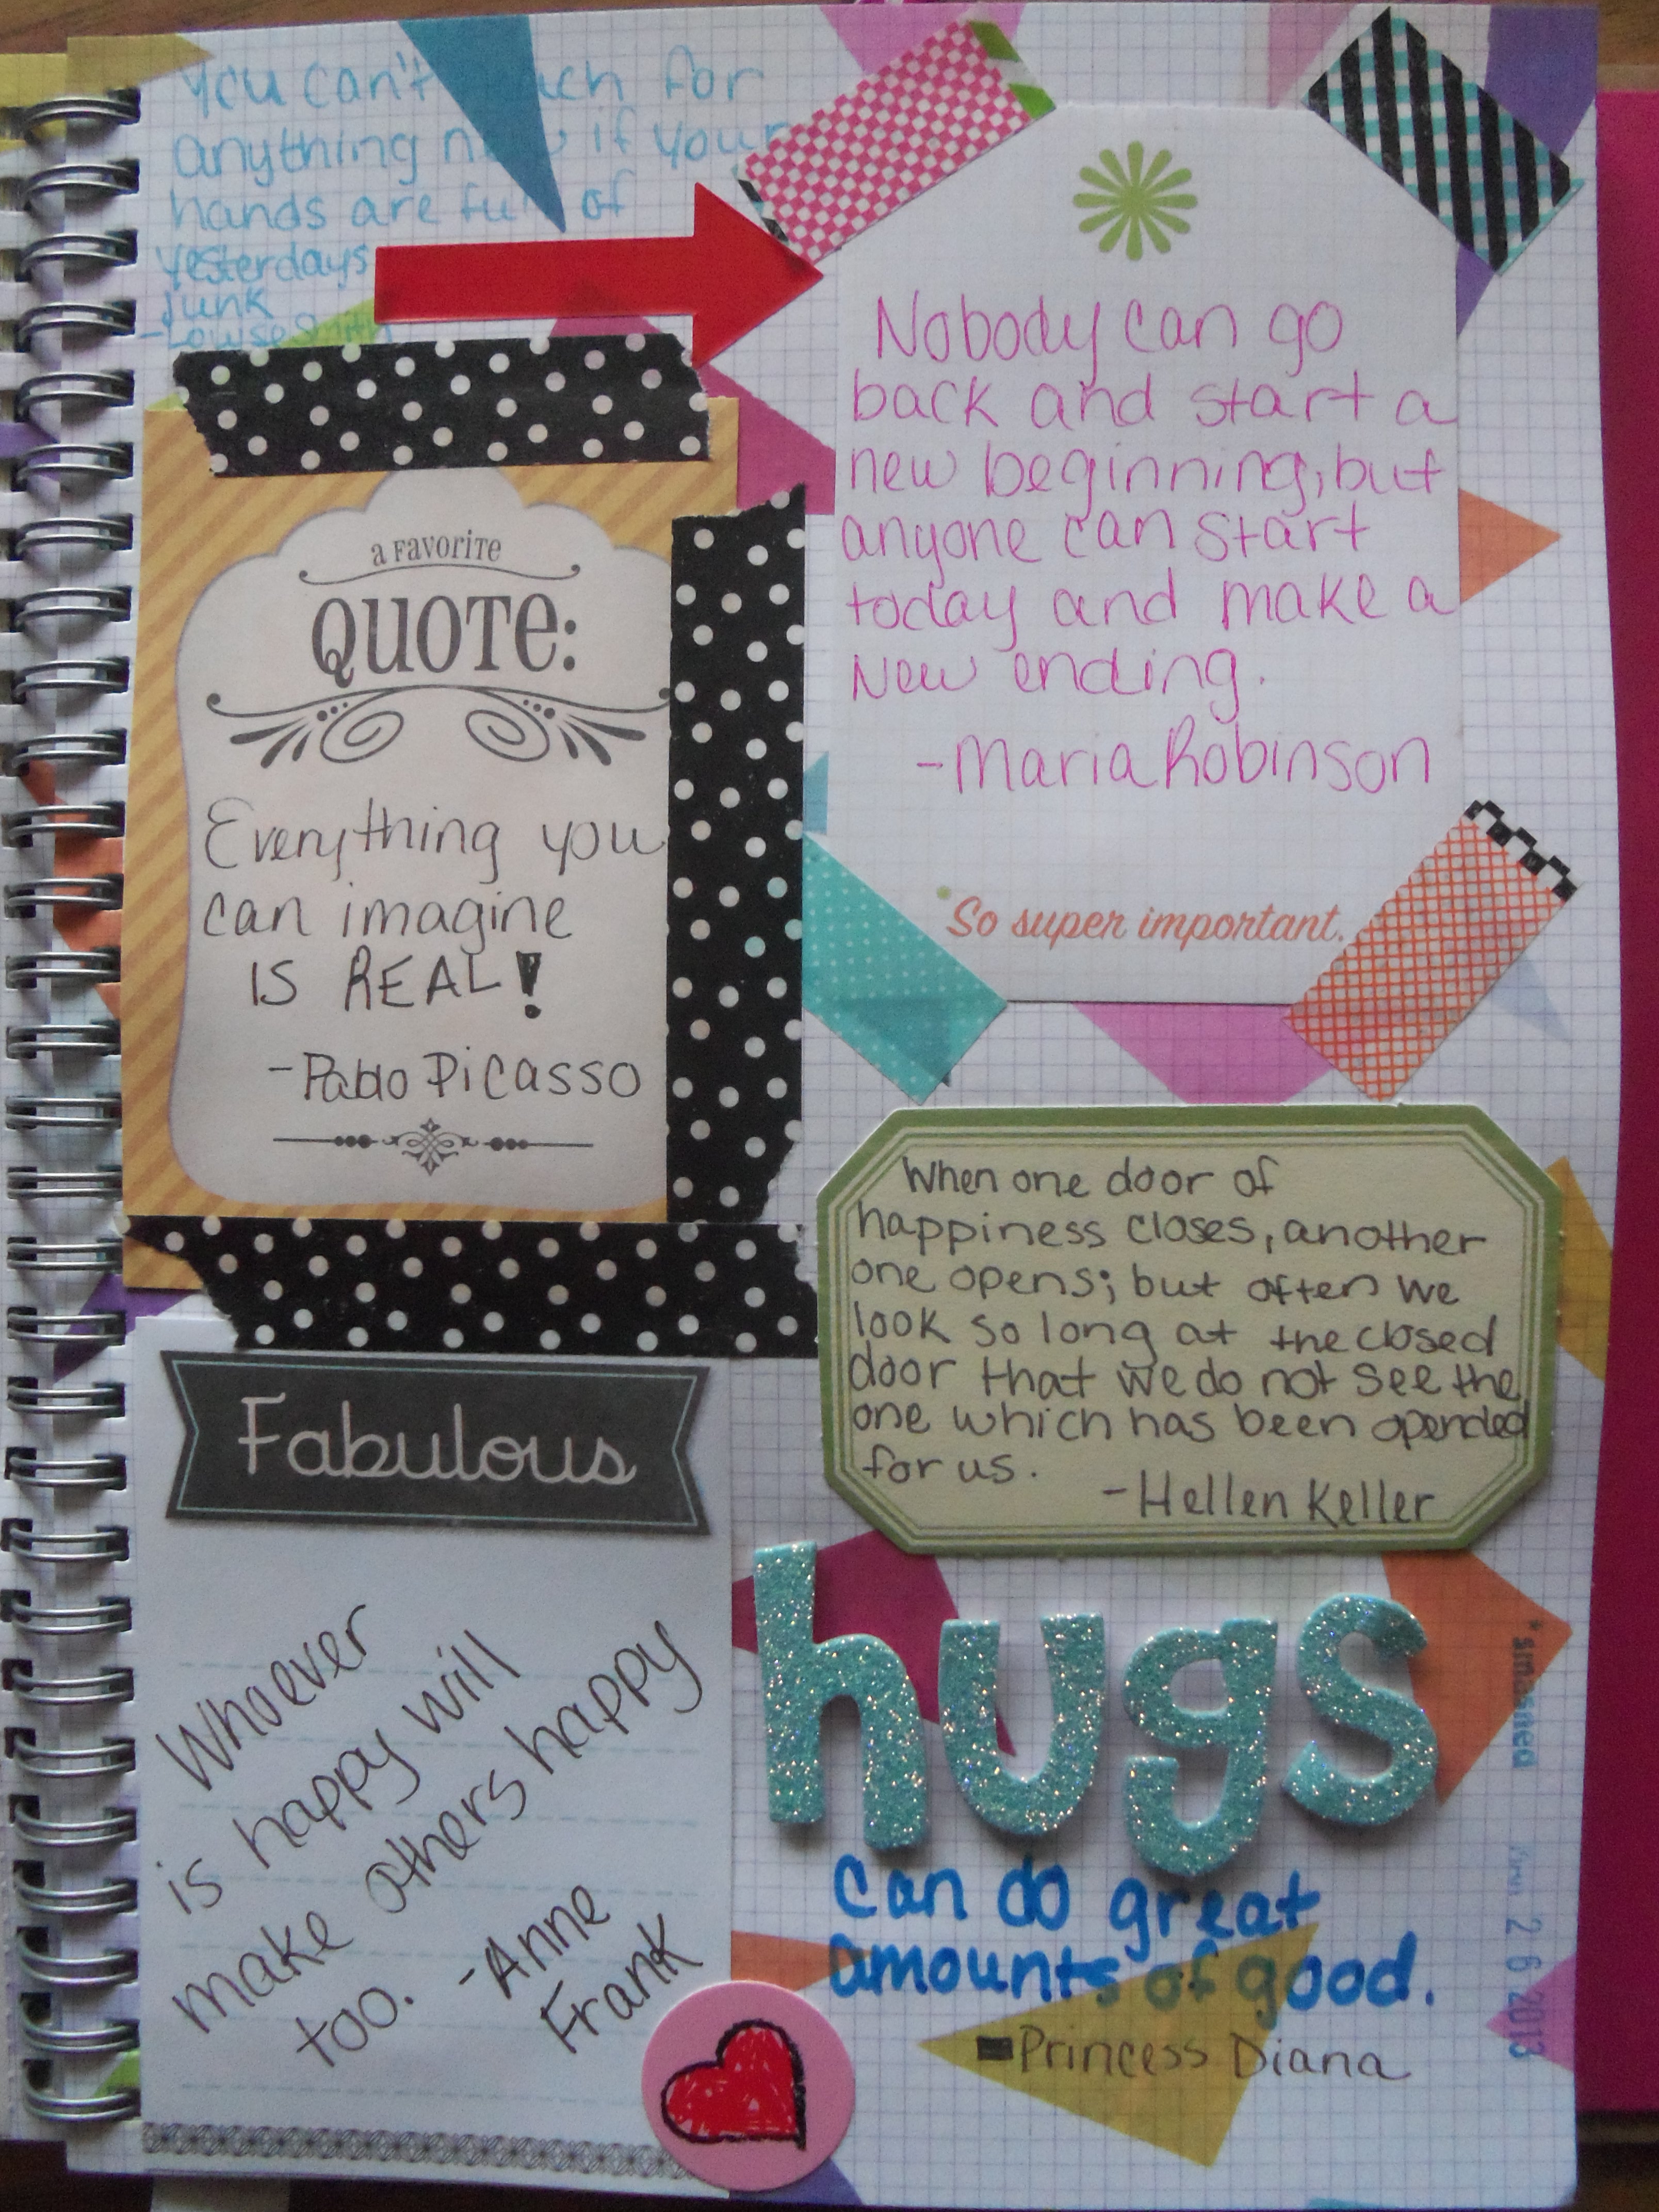 You can't reach for
anything new if your
hands are full of
yesterdays
junk
-Louise Smith
Nobody can go
back and start a
new beginning, but
anyone can start
today and make a
New ending.
-Maria Robinson
*So super important.
a FAVORITE
QUOTE:
Everything you
can imagine
IS REAL!
-Pablo Picasso
When one door of
happiness closes, another
one opens; but often we
look so long at the closed
door that we do not see the
one which has been opended
for us.
-Hellen Keller
Fabulous
Whoever
is happy will
make others happy
too. -Anne
Frank
hugs
Can do great
amounts of good.
-Princess Diana
2 6 2013